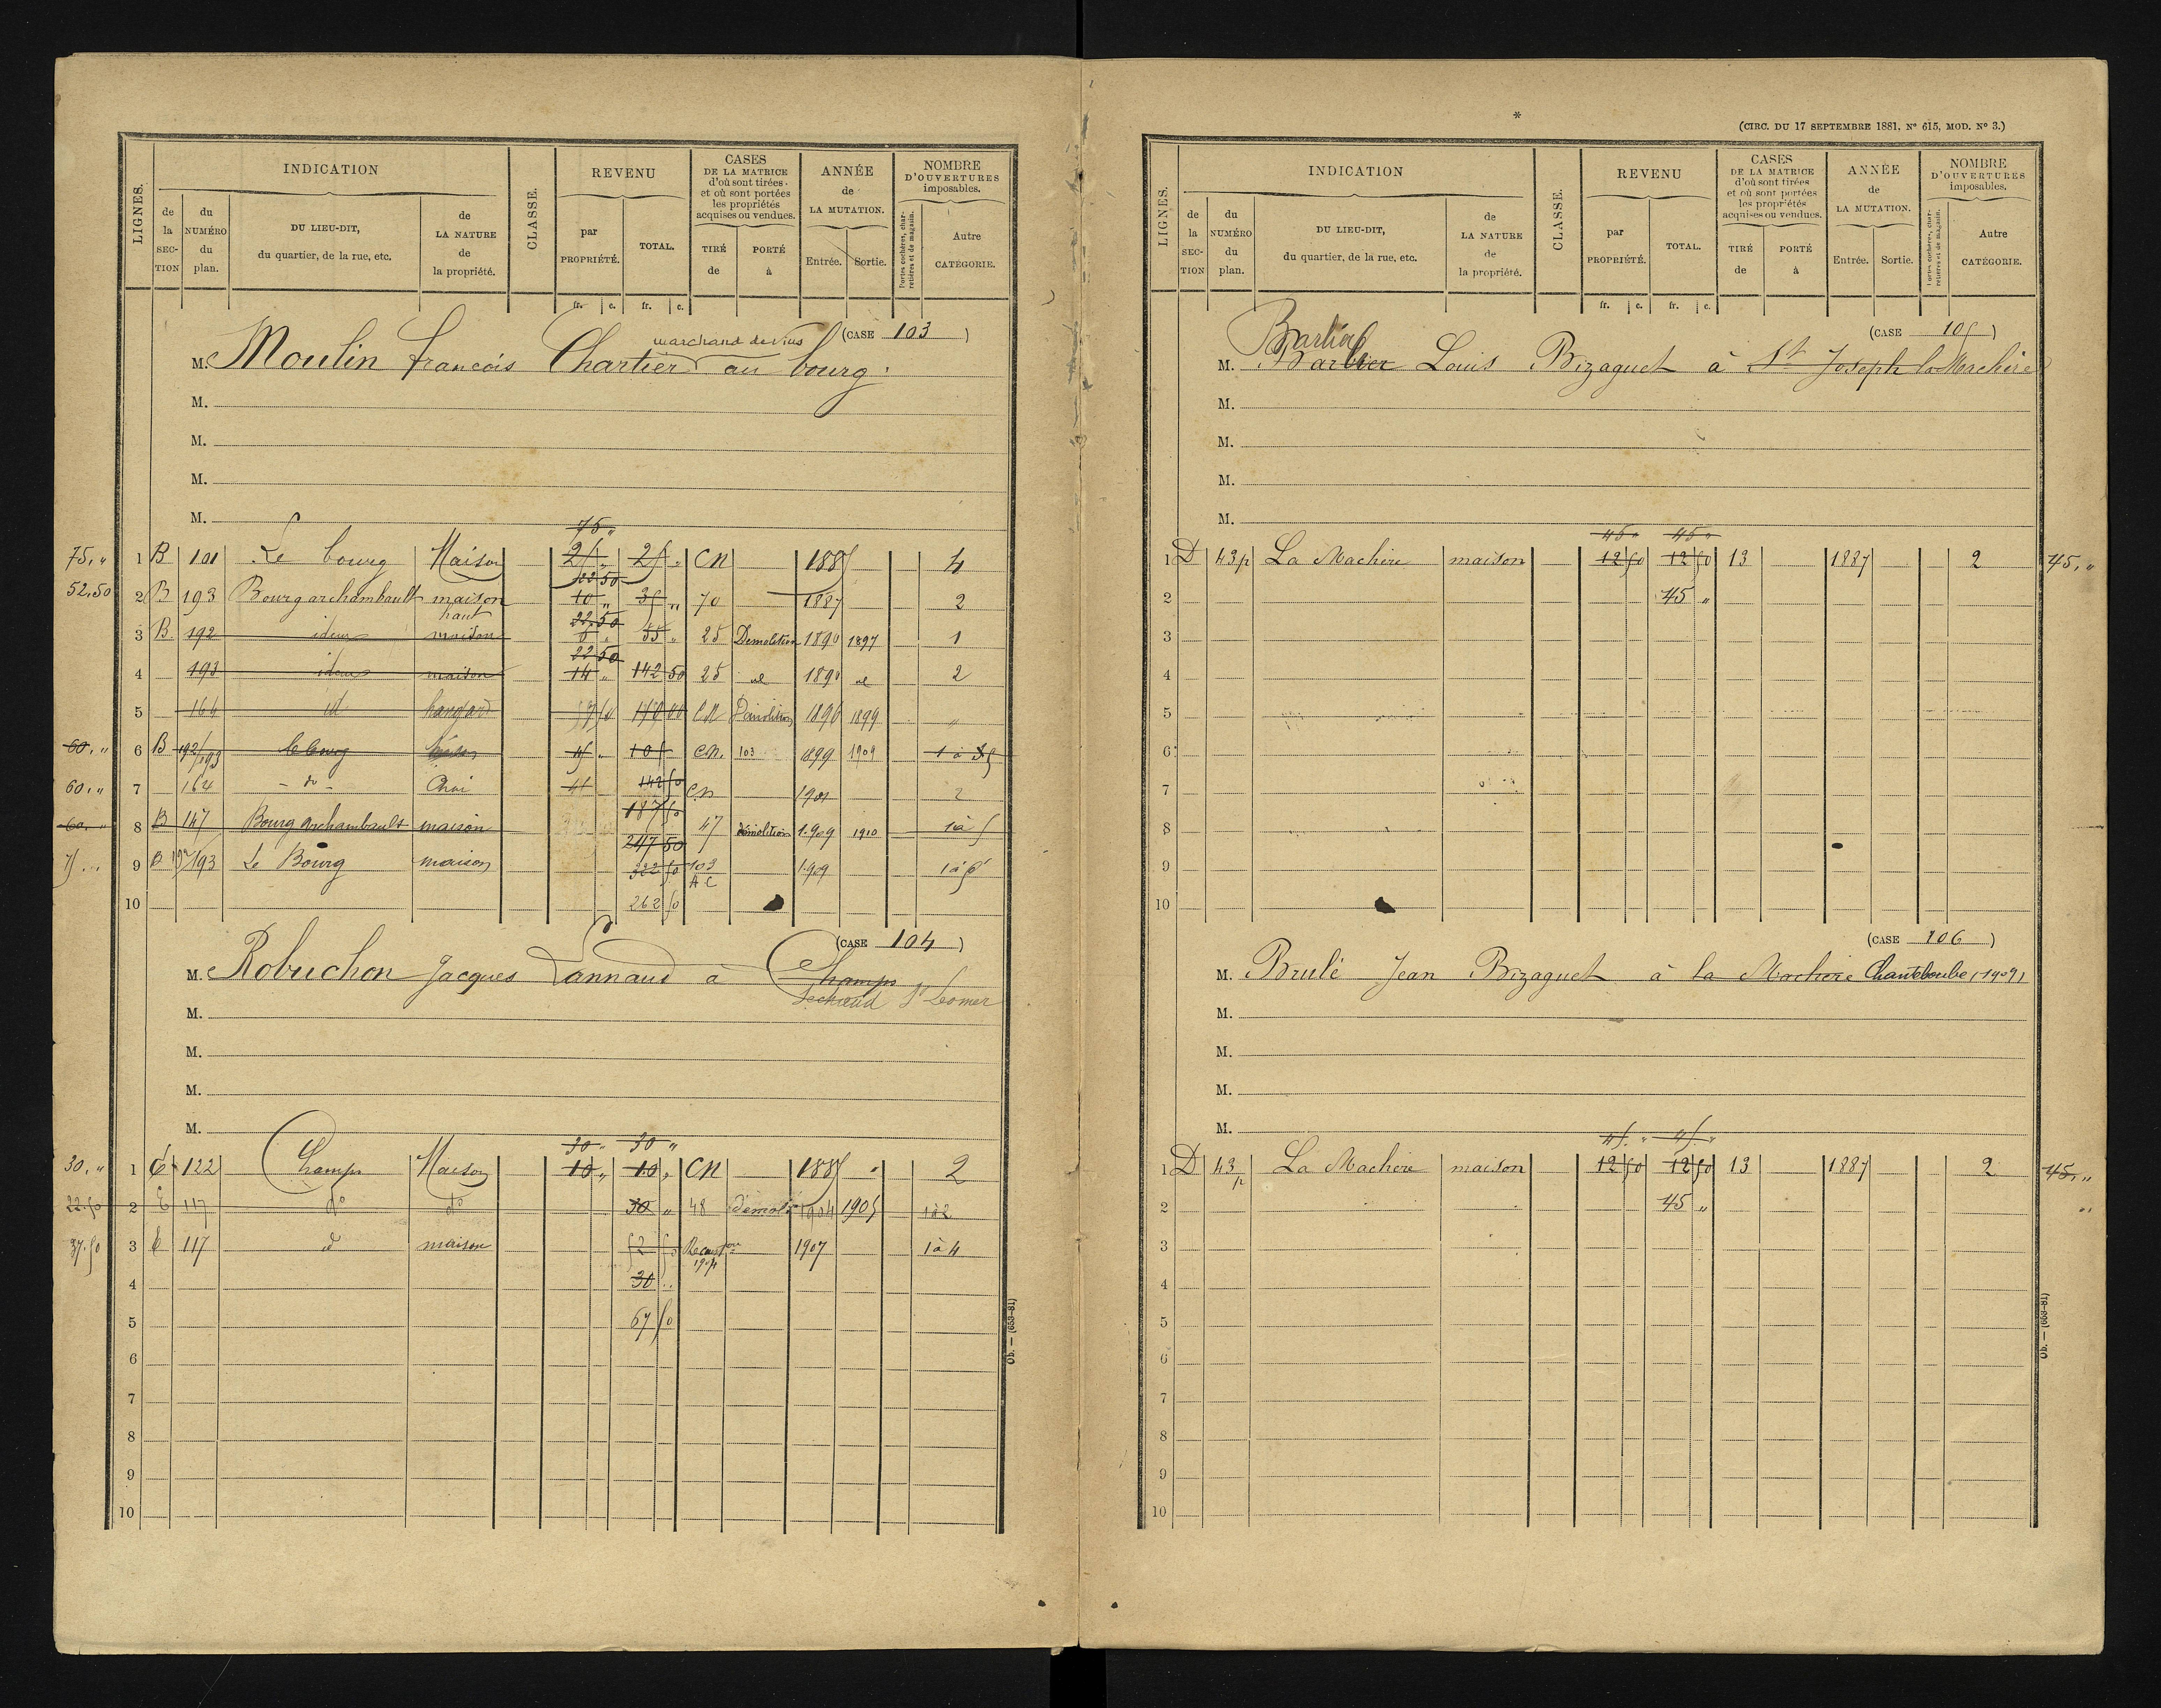 LIGNES. INDICATION CLASSE. REVENU CASES DE LA MATRICE d'où sont tirées et où sont portées les propriétés acquises ou vendues. ANNÉE de LA MUTATION. NOMBRE D'OUVERTURES imposables.
de la SECTION du NUMÉRO du plan. DU LIEU-DIT, du quartier, de la rue, etc. de LA NATURE de la propriété. par PROPRIÉTÉ. TOTAL. TIRÉ de PORTÉ à Entrée. Sortie. Portes cochères, charretières et de magasin. Autre CATÉGORIE.
fr. c. fr. c.
(CASE 103)
marchand de vins
M. Moulin francois Chartier au bourg.
M.
M.
M.
M.
75 "
75, " 1 B 101 Le bourg Maison 25 " 25 " CN 1885 4
22 50
52,50 2 B 193 Bourgarchambault maison 10 " 35 " 70 1887 2
haut
22.50
3 B 192 idem maison 55 " 25 Demolition 1890 1897 1
22 50
4 193 idem maison 14 " 142 50 25 id 1890 id 2
5 164 id hangard CN Démolition 1896 1899 "
60, " 6 B 192/193 le bourg 45 " 105 CN. 103 1899 1909
60, " 7 164 - do - Chai 45 142 50 CN 1901 2
187 50
60, " 8 B 147 Bourg Archambault maison 47 démolition 1.909 1910 1 à 5
247 50
9 B 192/193 Le Bourg maison 322 50 103 1909
A C
10 262 50
(CASE 104)
M. Robuchon Jacques Lannaud à Champs
St Leomer
M.
M.
M.
M.
30 " 30 "
30, " 1 E 122 Champs Maison 10 " 10 " CN 1885 " 2
22.50 2 E 117 do do 30 " 48 démoli 1904 1905 1 à 2
37.50 3 E 117 d maison 52 50 Reconston 1907 1 à 4
1904
4 30 ..
5 67 50
6
7
8
9
10
Ob. — (653-81)
*
(CIRC. DU 17 SEPTEMBRE 1881, N° 615, MOD. N° 3.)
LIGNES. INDICATION CLASSE. REVENU CASES DE LA MATRICE d'où sont tirées et où sont portées les propriétés acquises ou vendues. ANNÉE de LA MUTATION. NOMBRE D'OUVERTURES imposables.
de la SECTION du NUMÉRO du plan. DU LIEU-DIT, du quartier, de la rue, etc. de LA NATURE de la propriété. par PROPRIÉTÉ. TOTAL. TIRÉ de PORTÉ à Entrée. Sortie. Portes cochères, charretières et de magasin. Autre CATÉGORIE.
fr. c. fr. c.
(CASE 105)
M. Barbier Louis Bizaguet à St Joseph la Machère
M.
M.
M.
M.
45 " 45 "
1 D 43p La Machère maison 12 50 12 50 13 1887 2 45, "
2 45 "
3
4
5
6
7
8
9
10
(CASE 106)
M. Brulé Jean Bizaguet à la Machère Chanteloube (1909)
M.
M.
M.
M.
45. " 45. "
1 D 43p La Machère maison 12 50 12 50 13 1887 2 45, "
2 45 "
3
4
5
6
7
8
9
10
Ob. — (653-81)